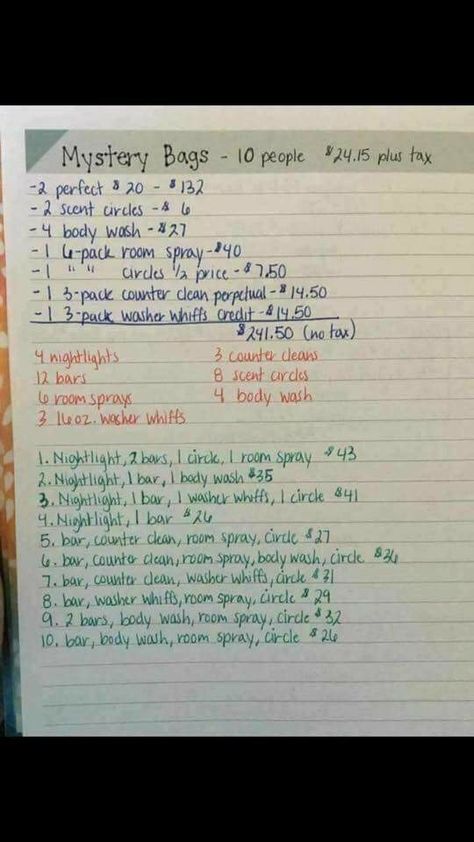 Mystery Bags - 10 people $24.15 plus tax
-2 perfect $20 - $132
-2 scent circles - $6
-4 body wash - $27
-1 6-pack room spray - $40
-1 " " circles 1/2 price - $7.50
-1 3-pack counter clean perpetual - $14.50
-1 3-pack washer whiffs credit - $14.50
$241.50 (no tax)
4 nightlights 3 counter cleans
12 bars 8 scent circles
6 room sprays 4 body wash
3 16 oz. washer whiffs
1. Nightlight, 2 bars, 1 circle, 1 room spray $43
2. Nightlight, 1 bar, 1 body wash $35
3. Nightlight, 1 bar, 1 washer whiffs, 1 circle $41
4. Nightlight, 1 bar $26
5. bar, counter clean, room spray, circle $27
6. bar, counter clean, room spray, body wash, circle $36
7. bar, counter clean, washer whiffs, circle $31
8. bar, washer whiffs, room spray, circle $29
9. 2 bars, body wash, room spray, circle $32
10. bar, body wash, room spray, circle $26